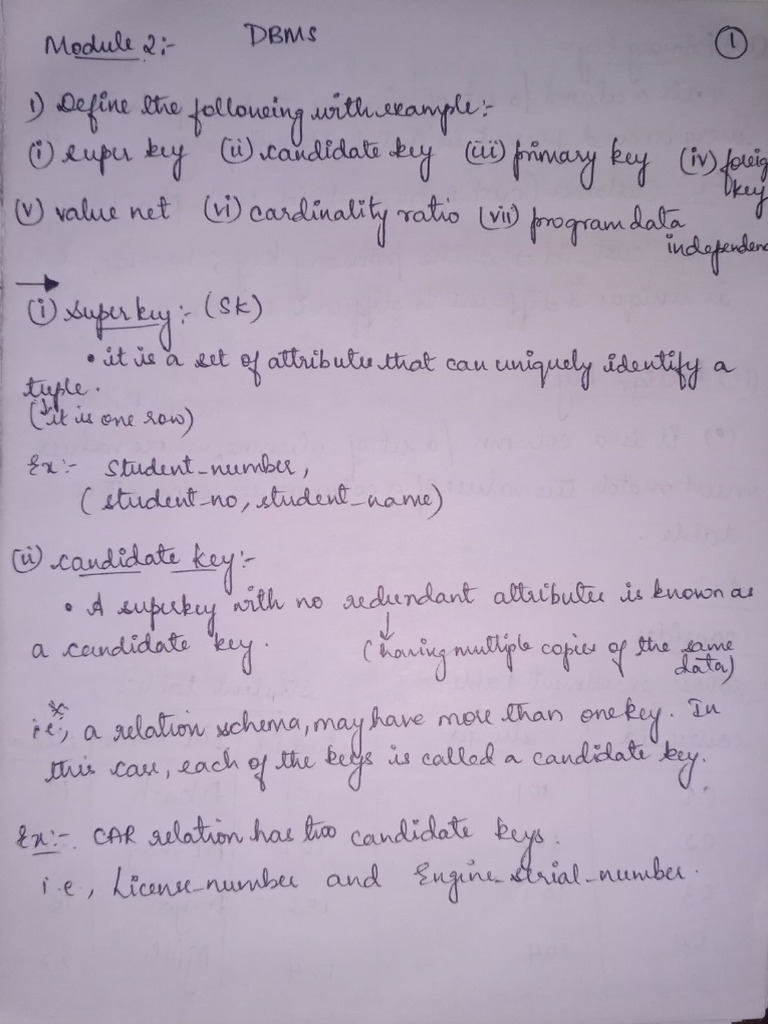 Module 2:- DBMS 1
1) Define the following with example:-
(i) super key (ii) candidate key (iii) primary key (iv) foreig
key
(v) value net (vi) cardinality ratio (vii) program data
independenc
(i) super key:- (SK)
• it is a set of attributes that can uniquely identify a
tuple.
(it is one row)
Ex:- Student_number,
(student_no, student_name)
(ii) candidate key:-
• A superkey with no redundant attributes is known as
a candidate key. (having multiple copies of the same
data)
i.e, a relation schema, may have more than one key. In
this case, each of the keys is called a candidate key.
Ex:- CAR relation has two candidate keys.
i.e, License_number and Engine_serial_number.